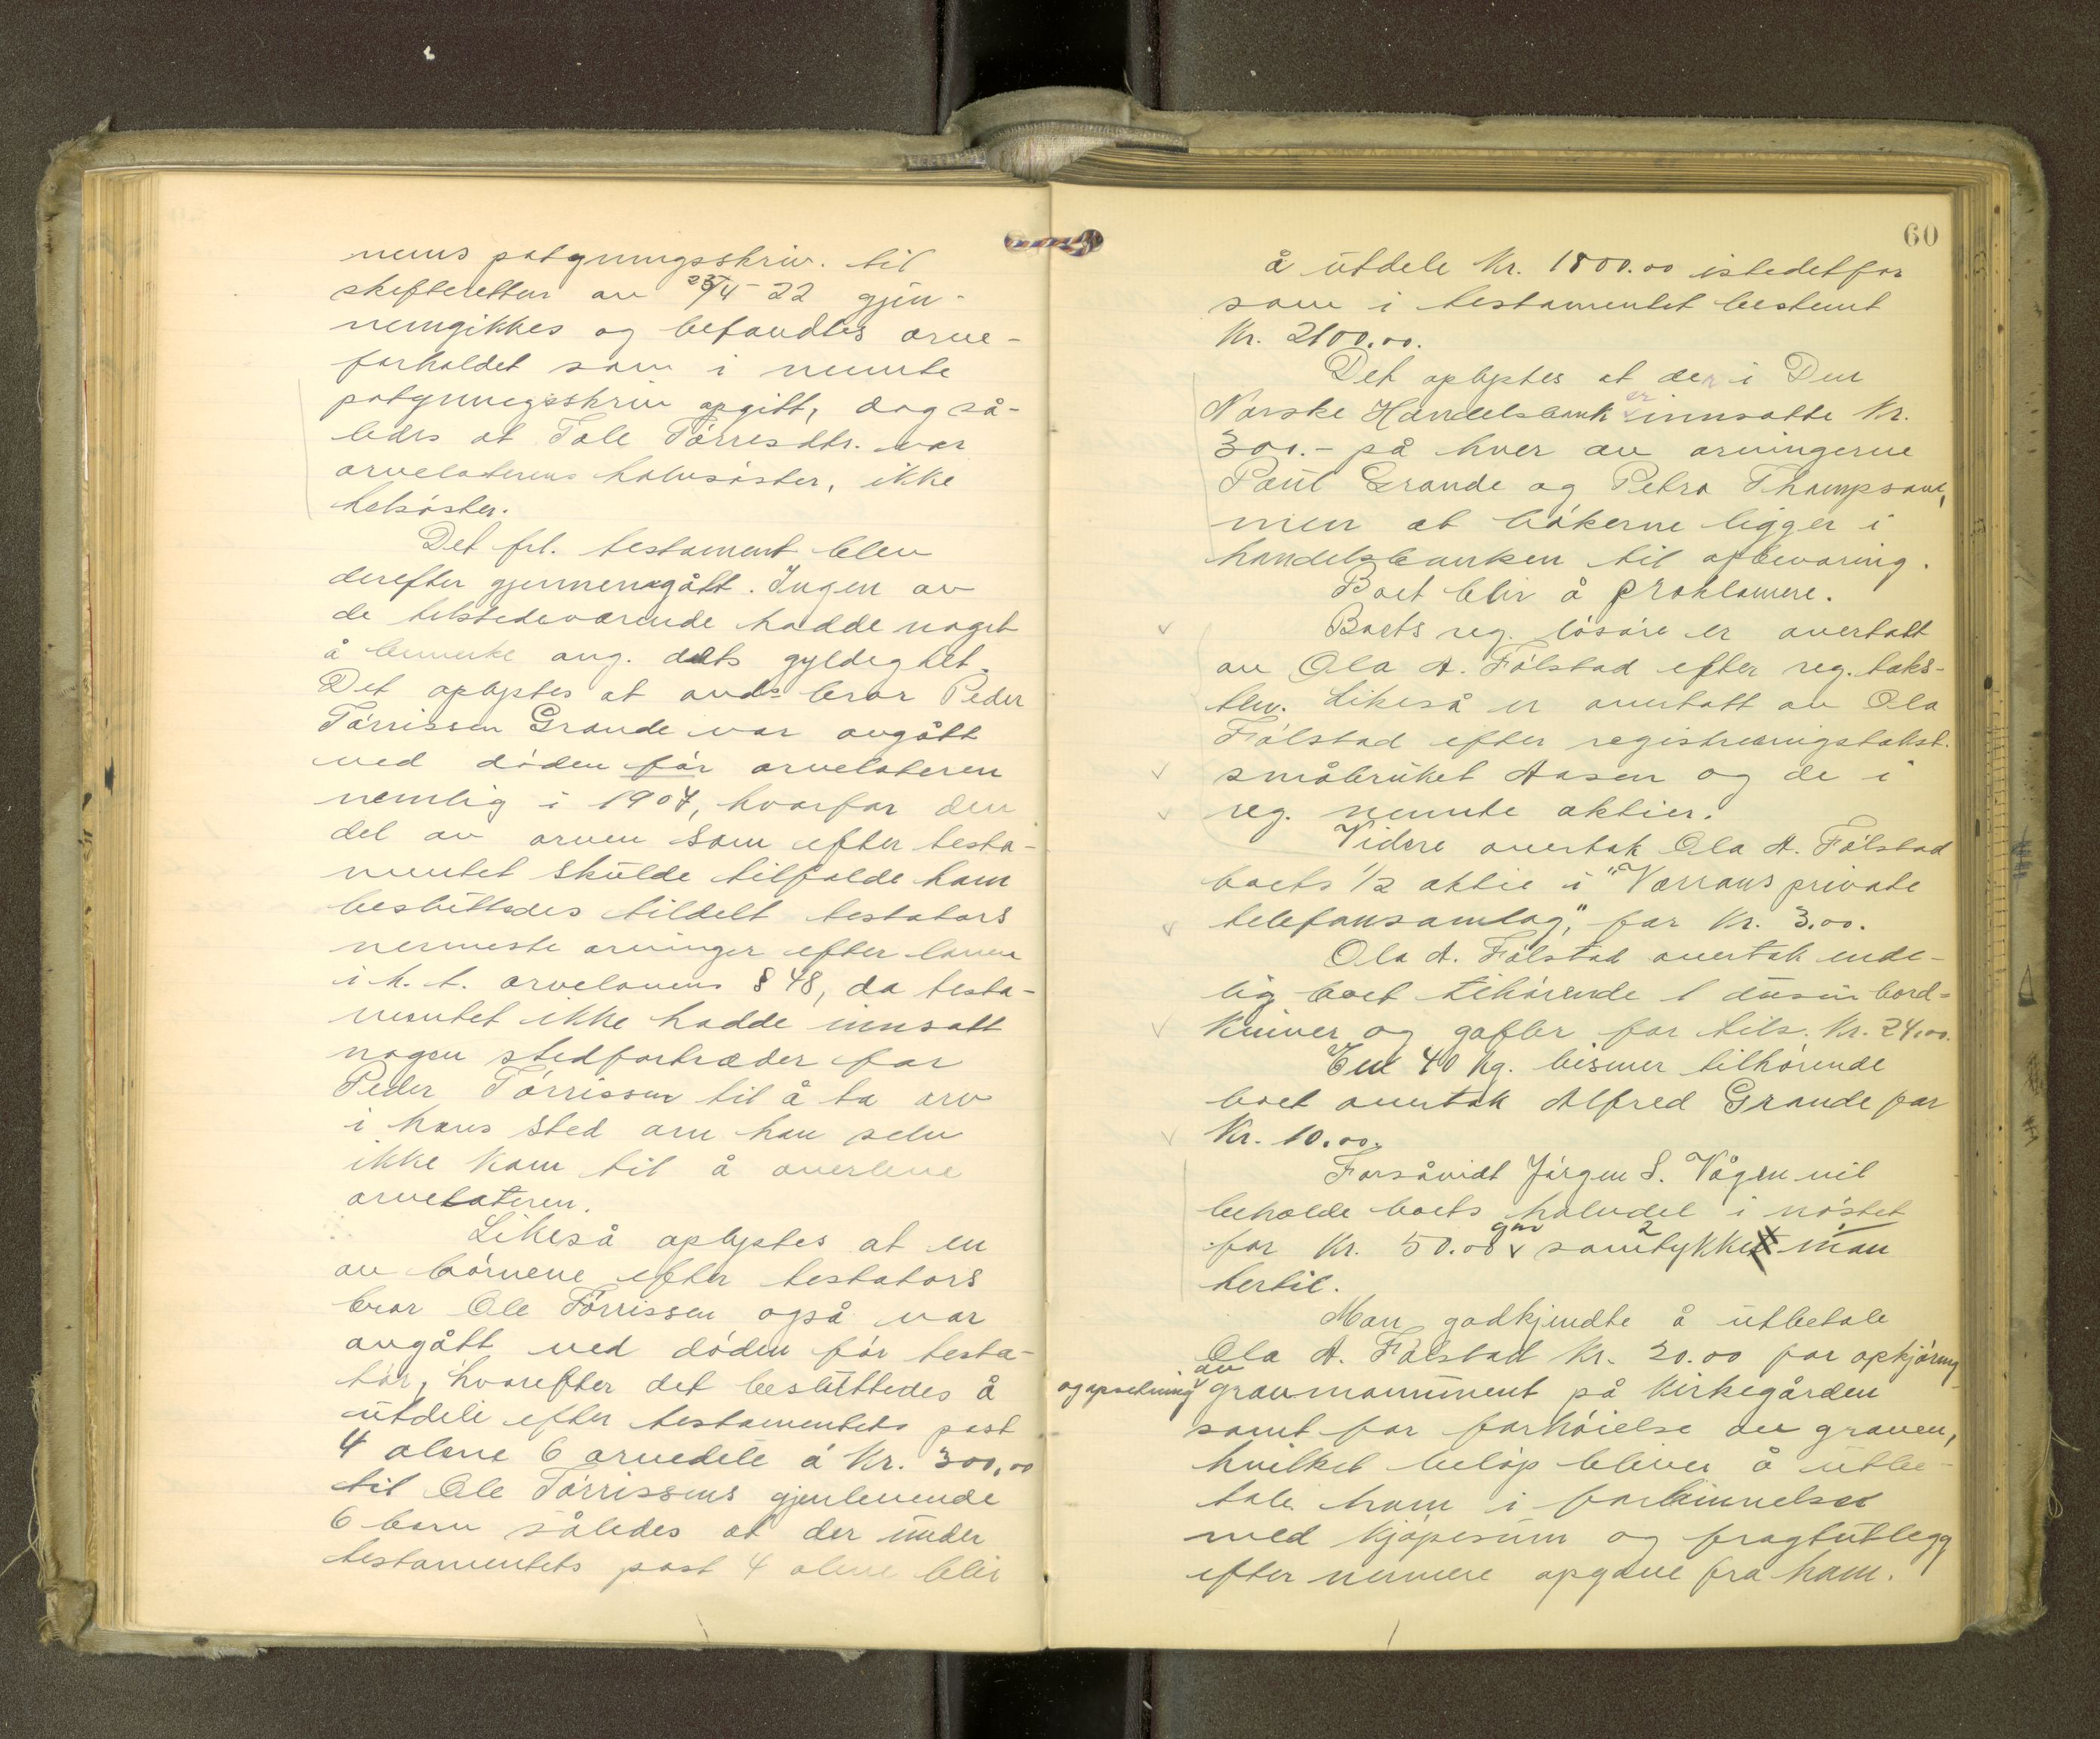 nems påtgningsskriv. til
skifteretten av 25/4-22 gjen-
nemgikkes og befandtes arve-
forholdet som i nevnte
påtgningsskriv opgitt, dog så-
ledes at Tale Tørresdtr. var
arvelaterens halvsøster, ikke
helsøster.
Det frl. testament blev
derefter gjennemgått. Ingen av
de tilstedeværende hadde noget
å bemerke ang. dets gyldighet.
Det oplystes at avds bror Peder
Tørrissen Grande var avgått
ved døden før arvelateren
nemlig i 1907, hvorfor den
del av arven som efter testa-
mentet skulde tilfalde ham
besluttedes tildelt testators
nermeste arvinger efter loven
i h. t. arvelovens § 48, da testa-
mentet ikke hadde innsatt
nogen stedfortræder for
Peder Tørrissen til å ta arv
i hans sted om han selv
ikke kom til å overleve
arvelateren.
Likeså oplystes at en
av børnene efter testators
bror Ole Tørrissen også var
avgått ved døden før testa-
tor, hvorefter det besluttedes å
utdele efter testamentets post
4 alene 6 arvedele á Kr. 300,00
til Ole Tørrissens gjenlevende
6 barn således at der under
testamentets post 4 alene blir
60
å utdele Kr. 1800.00 istedetfor
som i testamentet bestemt
Kr. 2100.00.
Det oplystes at der i Den
Norske Handelsbank er innsatte Kr.
300.- på hver av arvingerne
Paul Grande og Petra Thompsone,
men at bøkerne ligger i
handelsbanken til opbevaring.
Boet blir å proklamere.
Boets reg. løsøre er overtatt
av Ola A. Følstad efter reg. taks-
ten. Likeså er overtatt av Ola
Følstad efter registreringstakst.
småbruket Aasen og de i
reg. nevnte aktier.
Videre overtok Ola A. Følstad
boets 1/2 aktie i "Værrans private
telefonsamlag", for Kr. 3.00.
Ola A. Følstad overtok ende-
lig boet tilhørende 1 dusin bord-
kniver og gafler for tils. Kr. 24.00.
En 40 kg. bismer tilhørende
boet overtok Alfred Grande for
Kr. 10.00.
Forsåvidt Jørgen S. Vågen vil
beholde boets halvdel i nøstet
for Kr. 50.00 gav samtykke man
hertil.
Man godkjendte å utbetale
Ola A. Følstad Kr. 20.00 for opkjøring
og opsetning av gravmonument på kirkegården
samt for forhøielse av graven,
hvilket beløp bliver å utbe-
tale ham i forbinnelse
med kjøpesum og fragtutlegg
efter nermere opgave fra ham.